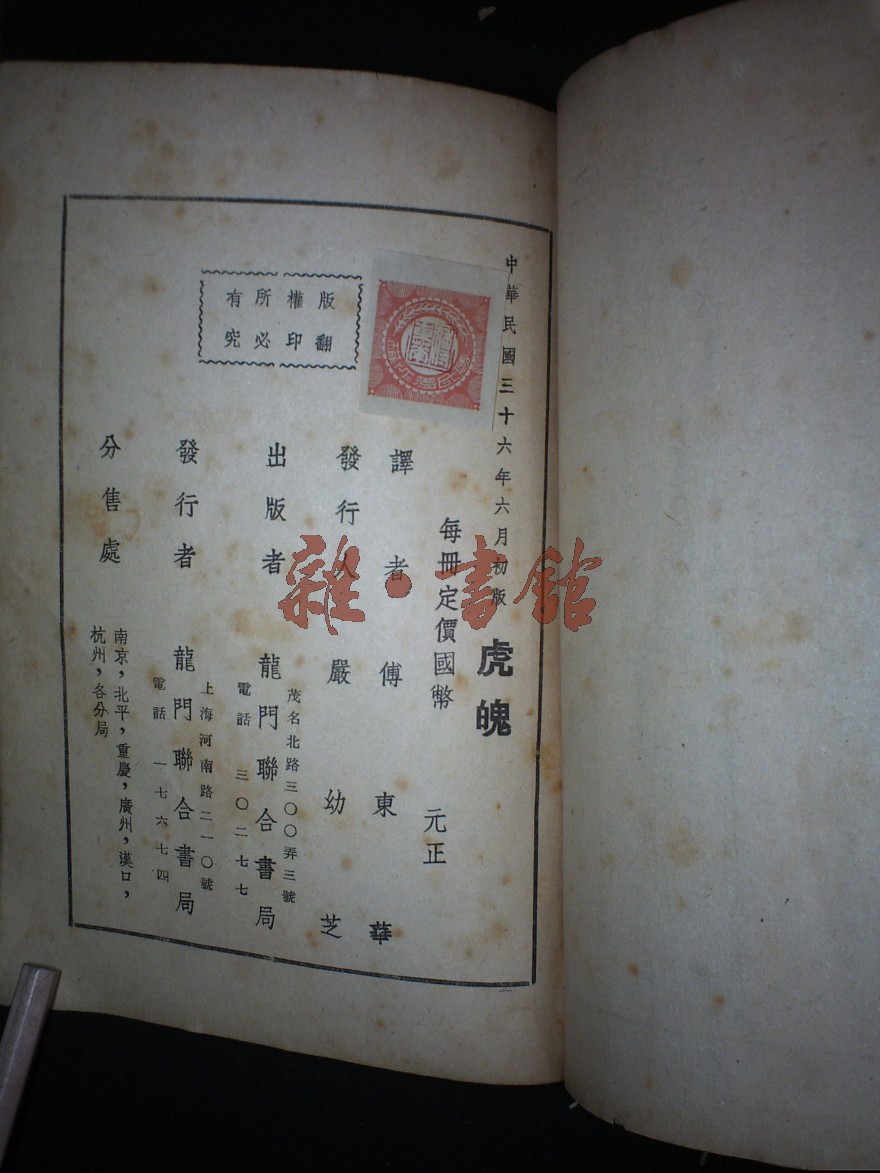 中華民國三十六年六月初版
虎魄
每冊定價國幣 元正
譯者 傅東華
發行人 嚴幼芝
出版者 龍門聯合書局
茂名北路三〇〇弄三號
電話 三〇二七七
發行者 龍門聯合書局
上海河南路二一〇號
電話 一七六七四
分售處
南京，北平，重慶，廣州，漢口，
杭州，各分局
版權所有
翻印必究
雜·書館